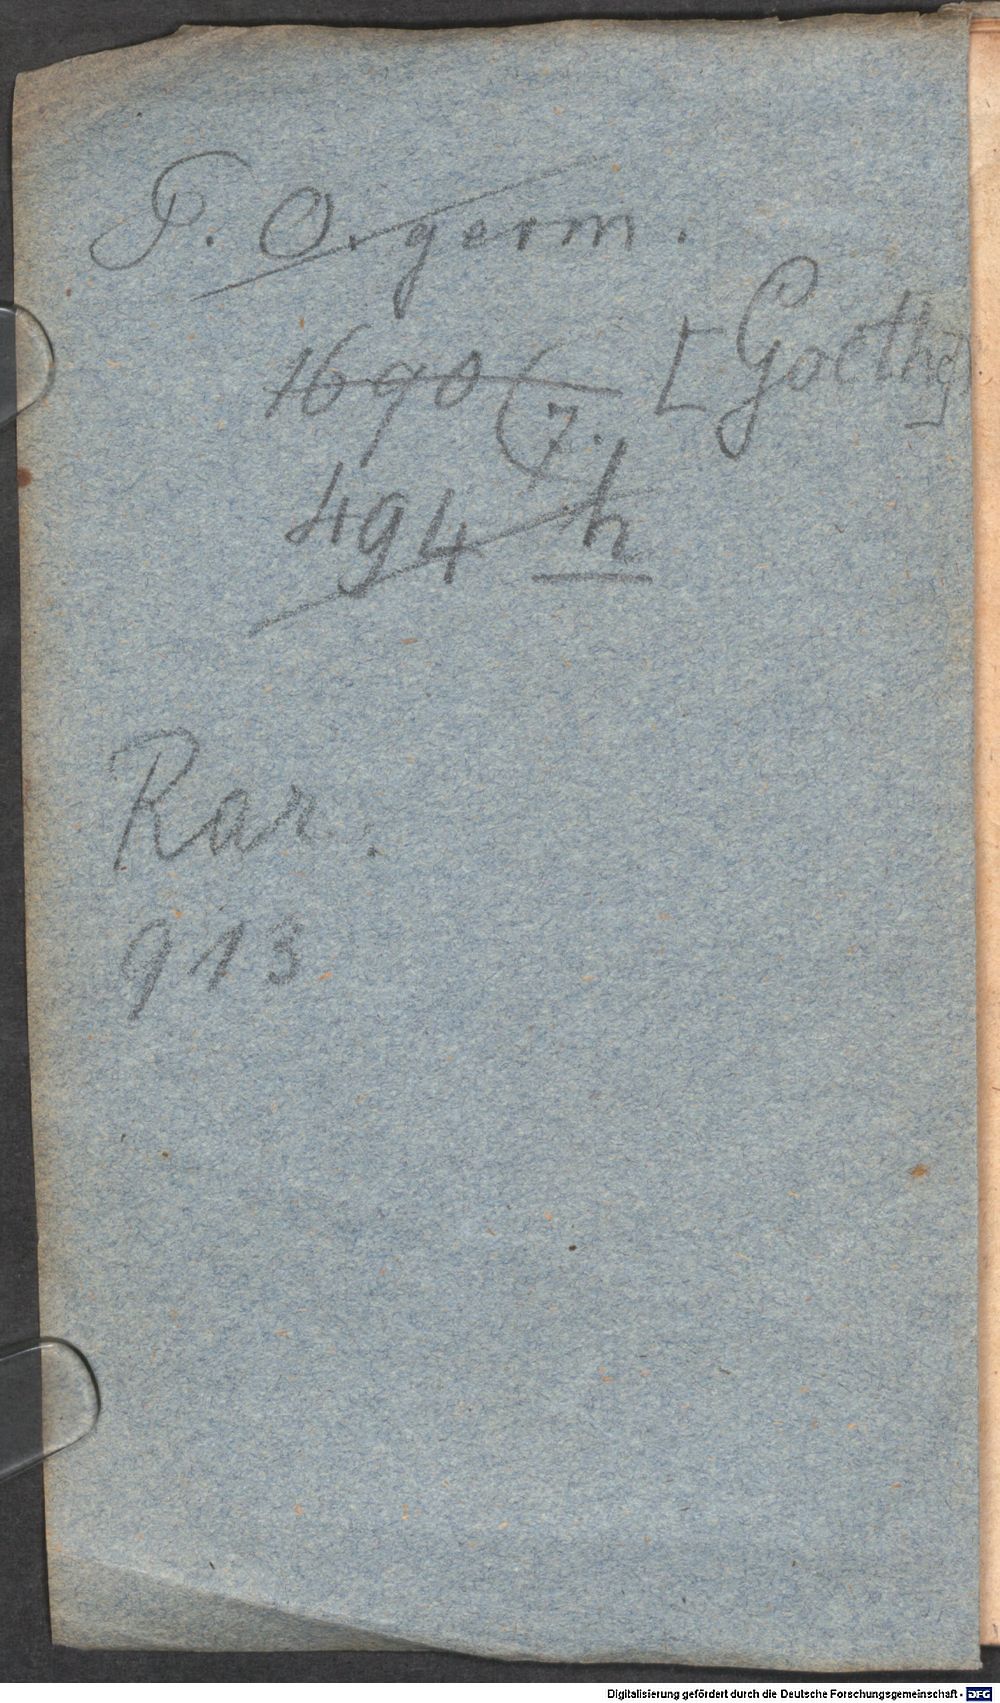 P. O. germ.
1690 (7. [Goethe]
494 h
Rar.
913
Digitalisierung gefördert durch die Deutsche Forschungsgemeinschaft - DFG